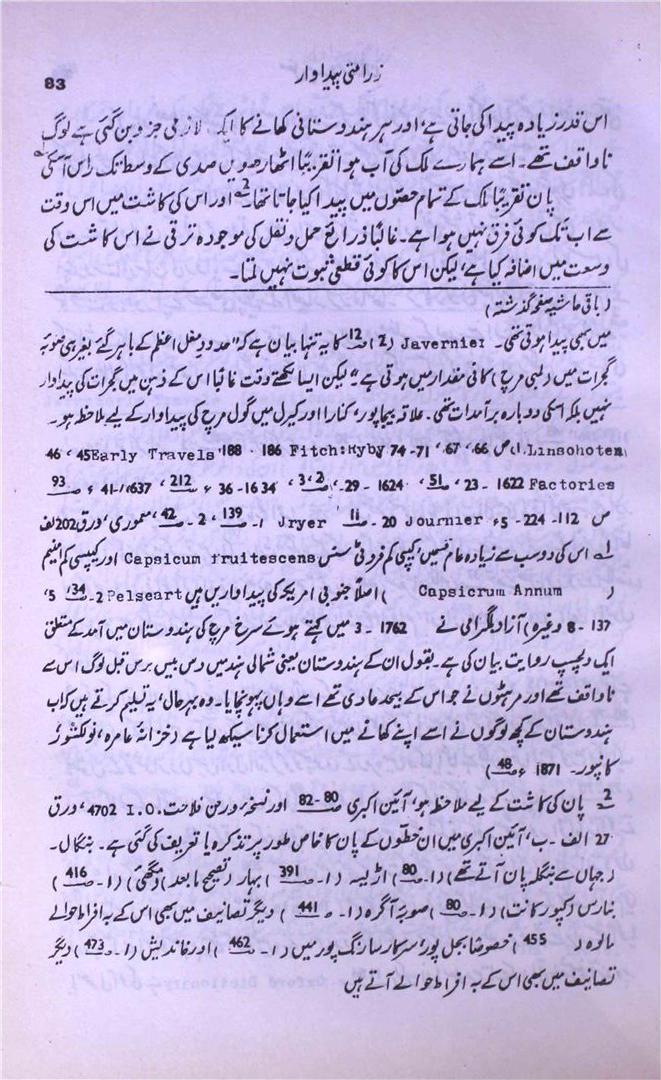 زراعتی پیداوار
83
اس قدر زیادہ پیدا کی جاتی ہے، اور ہر ہندوستانی کھانے کا ایک لازمی جزو بن گئی ہے لوگ
ناواقف تھے۔ اسے ہمارے ملک کی آب و ہوا تقریباً اٹھارھویں صدی کے وسط تک راس آسکی
پان تقریباً ملک کے تمام حصّوں میں پیدا کیا جاتا تھا2 اور اس کی کاشت میں اس وقت
سے اب تک کوئی فرق نہیں ہوا ہے۔ غالباً ذرائع حمل و نقل کی موجودہ ترقی نے اس کاشت کی
وسعت میں اضافہ کیا ہے، لیکن اس کا کوئی قطعی ثبوت نہیں ملتا۔
(باقی حاشیہ صفحہ گذشتہ)
میں بھی پیدا ہوتی تھی۔ Javernier (2) ص12 کا یہ تنہا بیان ہے کہ "حدود مغل اعظم کے باہر گئے بغیر ہی صوبہ
گجرات میں (لمبی مرچ) کافی مقدار میں ہوتی ہے" لیکن ایسا لکھتے وقت غالباً اس کے ذہن میں گجرات کی پیداوار
نہیں بلکہ اسکی دوبارہ برآمدات تھی۔ علاقہ بیجاپور، کنارا اور کیرل میں گول مرچ کی پیداوار کے لیے ملاحظہ ہو۔
Linsohoten، I، ص 66، 67، 71- 74 Fitch:Ryby 186 ، 188' Early Travels 45، 46
Factories 1622 - 23 ، ص51، 1624 - 29، ص2،3، 1634 - 36ء ص212، 1637-41ء ص93
ص 112- 224 -5ء Journier 20 - ص11 Jryer ا- ص139، 2- ص42، معموری، ورق 202الف
1 اس کی دو سب سے زیادہ عام قسمیں، کیپسی کم فروٹی ٹسنس Capsicum fruitescens اور کیپسی کم اینم
( Capsicrum Annum ) اصلاً جنوبی امریکہ کی پیداواریں ہیں Pelseart 2- ص134، 5،
137 - 8 وغیرہ) آزاد بلگرامی نے 1762 - 3 میں لکھتے ہوئے سرخ مرچ کی ہندوستان میں آمد کے متعلق
ایک دلچسپ روایت بیان کی ہے۔ بقول ان کے ہندوستان یعنی شمالی ہند میں دس بیس برس قبل لوگ اس سے
ناواقف تھے اور مرہٹوں نے جو اس کے بیحد عادی تھے اسے وہاں پہونچایا۔ وہ بہرحال، یہ تسلیم کرتے ہیں کہ اب
ہندوستان کے کچھ لوگوں نے اسے اپنے کھانے میں استعمال کرنا سیکھ لیا ہے (خزانۂ عامرہ، نولکشور
کانپور۔ 1871ء ص48)
2 پان کی کاشت کے لیے ملاحظہ ہو، آئین اکبری ص80-82 اور نسخہ در فن فلاحت، I.O. 4702، ورق
27 الف - ب، آئین اکبری میں ان خطّوں کے پان کا خاص طور پر تذکرہ یا تعریف کی گئی ہے۔ بنگال۔
(جہاں سے بنگلہ پان آتے تھے) (ا۔ ص80) اڑیسہ (ا۔ ص391) بہار (تصحیح مابعد) (مگھئی) (ا۔ ص416)
بنارس (کپور کانت) (ا۔ ص80) صوبۂ آگرہ (ا۔ ص441) دیگر تصانیف میں بھی اس کے بہ افراط حوالے
مالوہ ( 455 ) خصوصاً بجل پور، سرکار سارنگ پور میں (ا۔ ص462) اور خاندیش (ا۔ ص473) دیگر
تصانیف میں بھی اس کے بہ افراط حوالے آتے ہیں